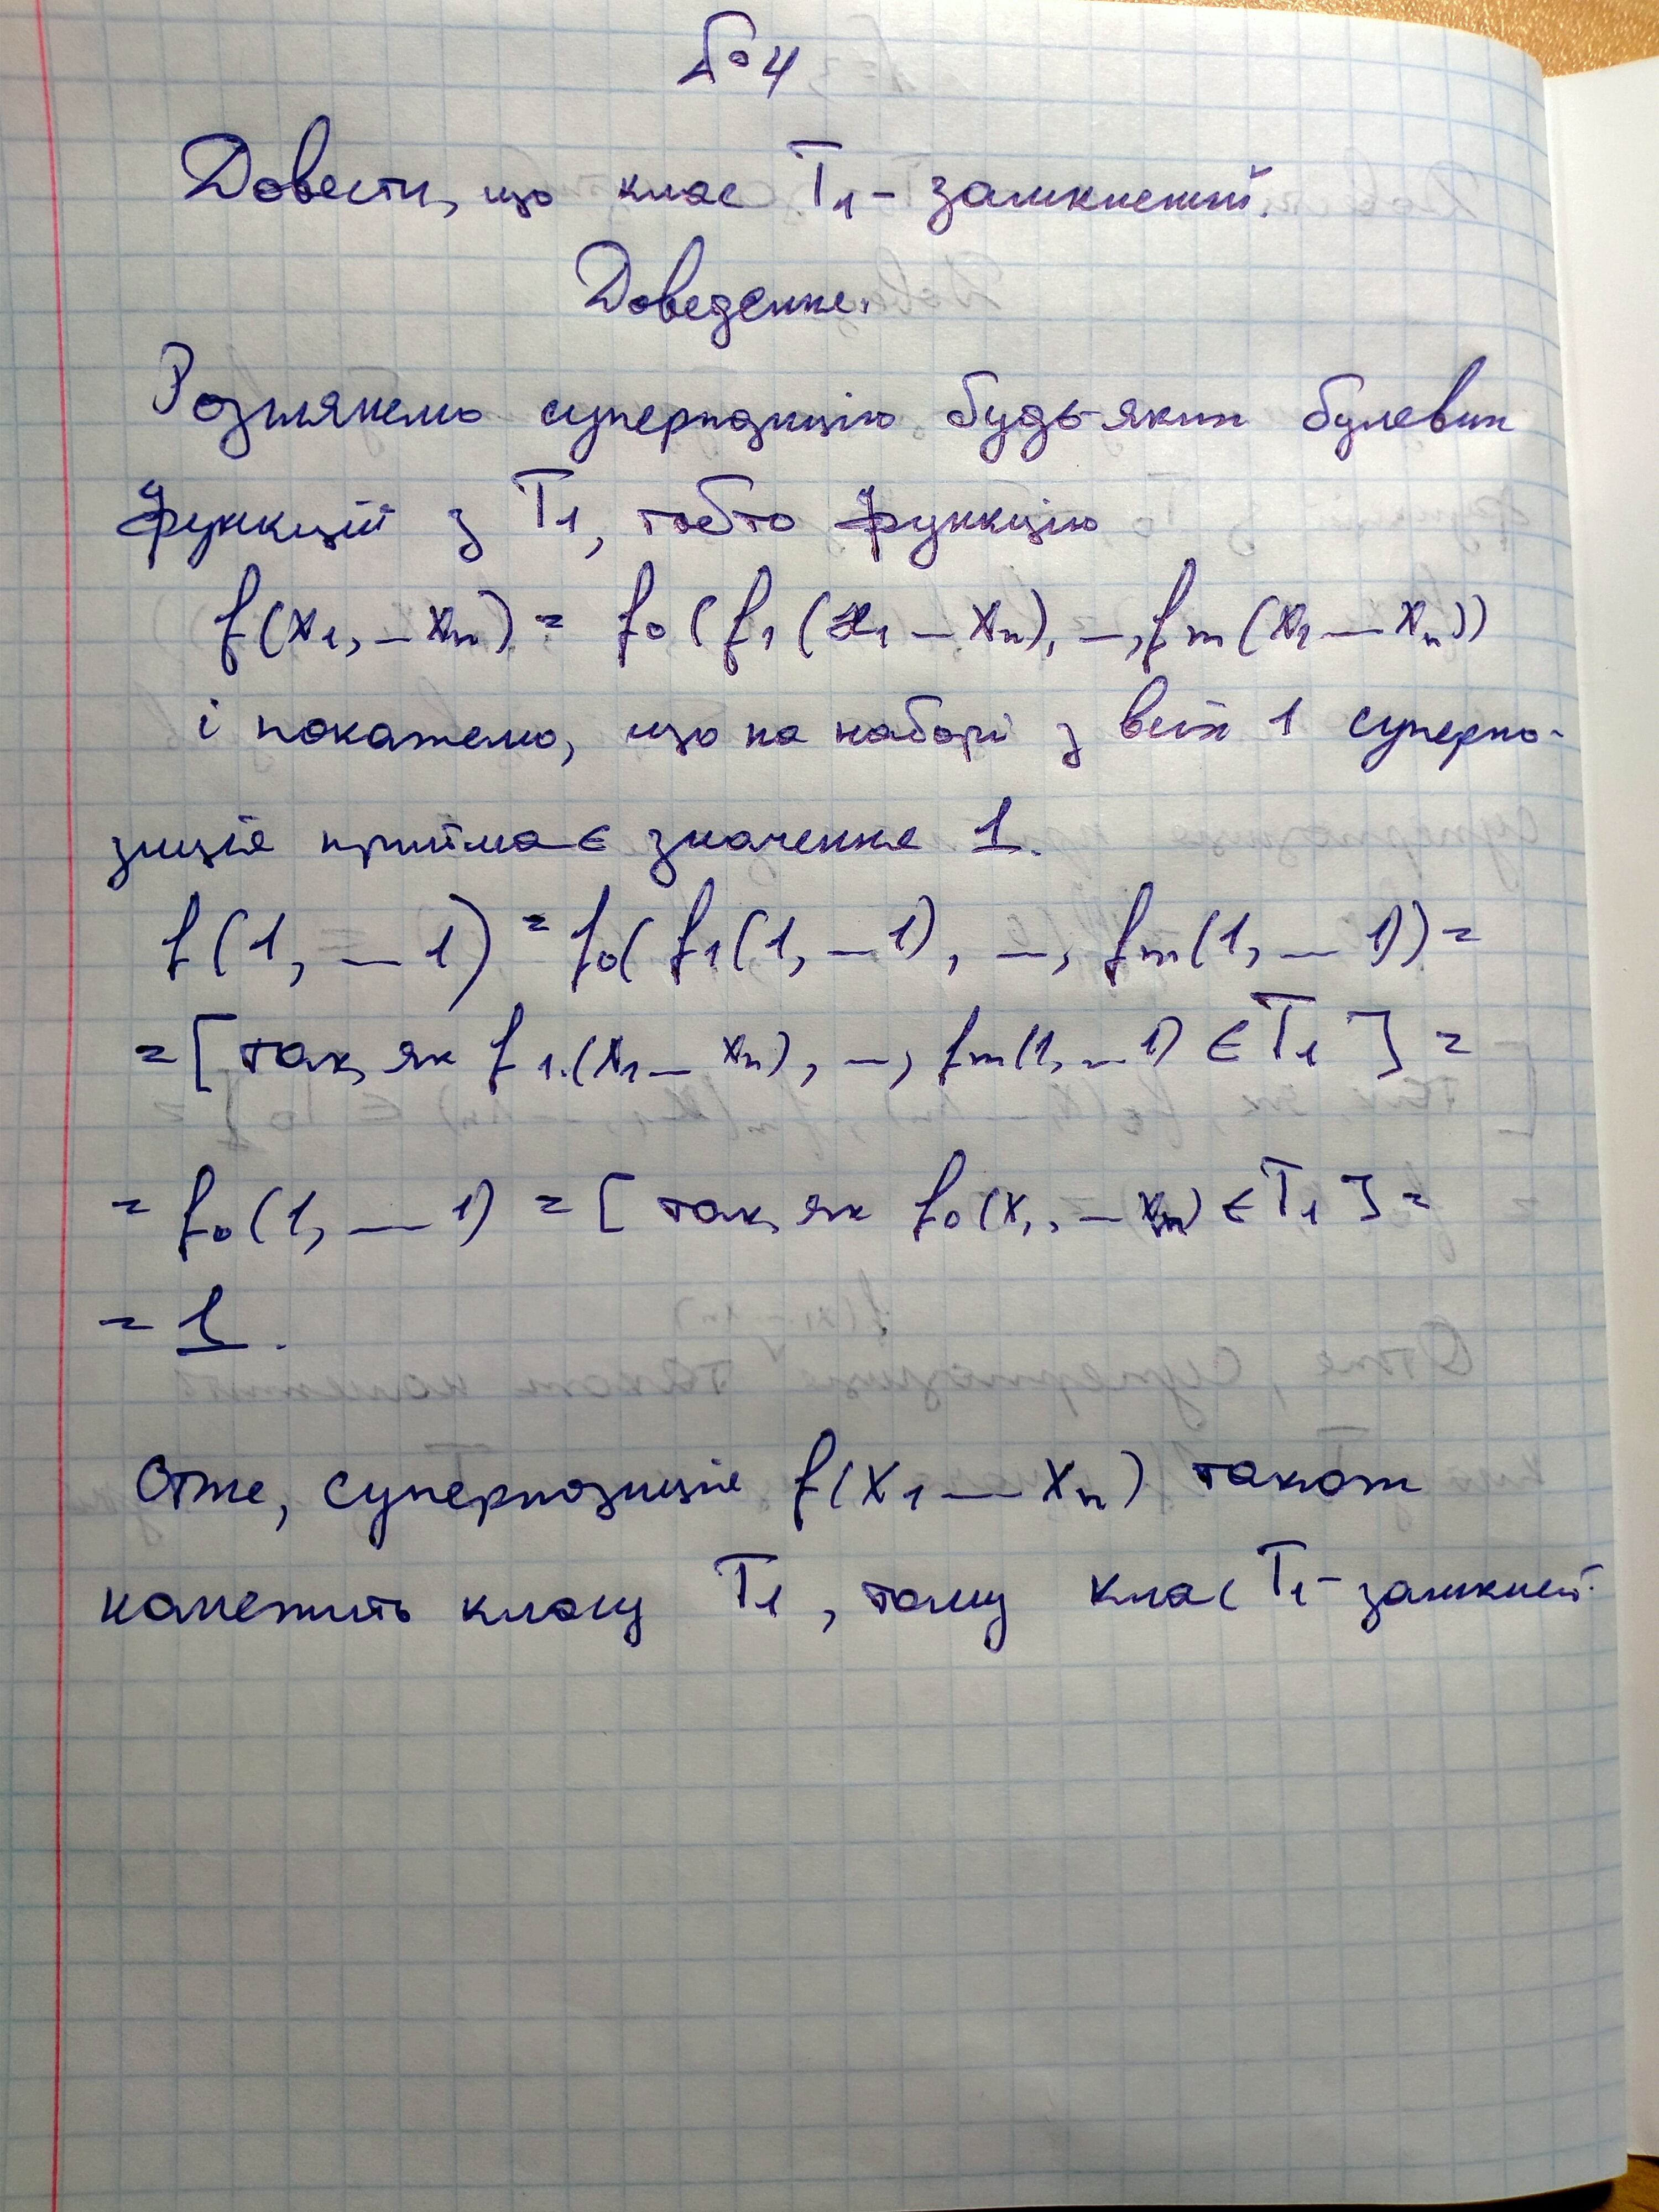 № 4
Довести, що клас T₁ - замкнений.
Доведення.
Розглянемо суперпозицію будь-яких булевих
функцій з T₁, тобто функцію
f(x₁, ... xₙ) = f₀(f₁(x₁ ... xₙ), ..., fₘ(x₁ ... xₙ))
і покажемо, що на наборі з всіх 1 суперпо-
зиція приймає значення 1.
f(1, ... 1) = f₀(f₁(1, ... 1), ..., fₘ(1, ... 1)) =
= [так, як f₁.(x₁ ... xₙ), ..., fₘ(1, ... 1) ∈ T₁] =
= f₀(1, ... 1) = [так, як f₀(x₁, ... xₘ) ∈ T₁] =
= 1.
Отже, суперпозиція f(x₁ ... xₙ) також
належить класу T₁, тому клас T₁ - замкнен.